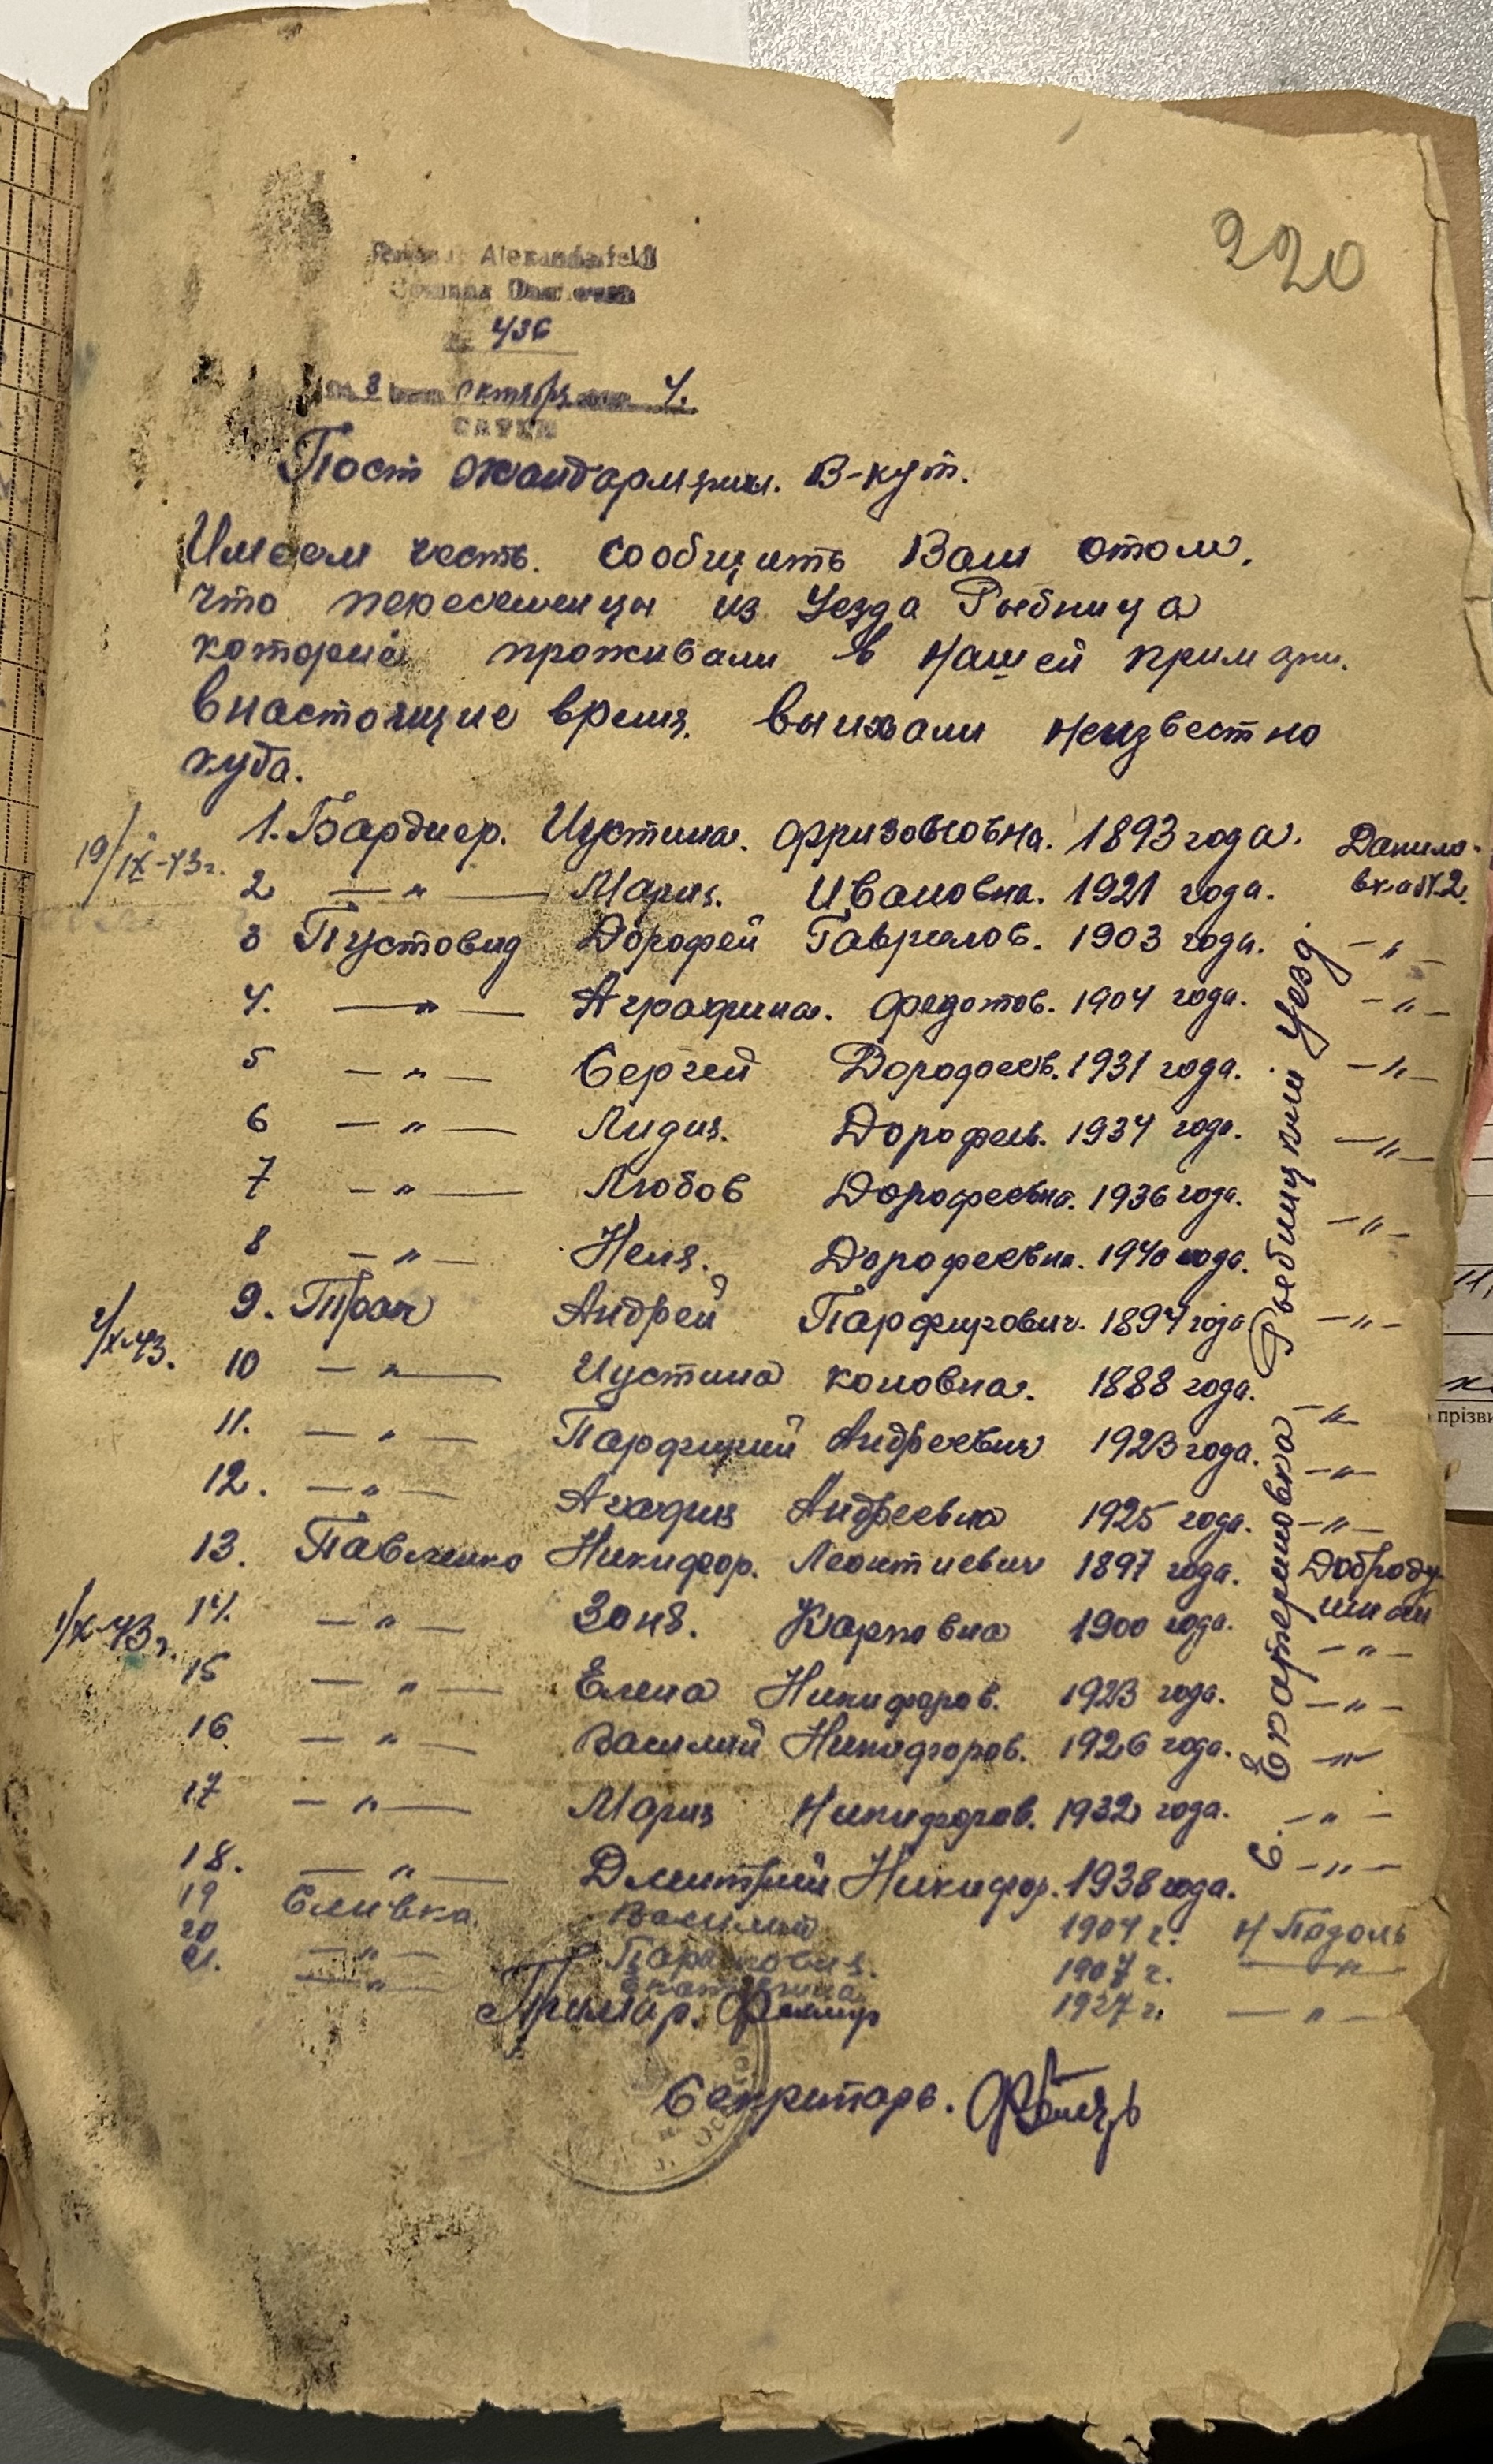 220
436
8 октября 4.
Пост жандармерии. В-кут.
Имеем честь. сообщить Вам отом,
что переселенцы из Уезда Рыбница
которие проживали в нашей примэрии.
внастоящие время. выихали неизвестно
куда.
19/IX-43г.
1. Бардиер. Иустина. 1893 года. Данило-
2 —"— Мария. Ивановна. 1921 года. вка
3 Пустовид Дорофей Гаврилов. 1903 года. —"—
4. —"— Аграфина. Федотов. 1904 года. —"—
5 —"— Сергей Дорофеев. 1931 года. —"—
6 —"— Лидия. Дорофев. 1934 года. —"—
7 —"— Любов Дорофеевна. 1936 года. —"—
8 —"— Неля. Дорофеевна. 1940 года.
9. Трач Андрей Парфирович. 1894 года —"—
2/X-43.
10 —"— Иустина коновна. 1888 года. —"—
11. —"— Парфирий Андреевич 1923 года. —"—
12. —"— Агафия Андреевна 1925 года. —"—
13. Павленко Никифор. Леонтиевич 1897 года. Доброду
1/X-43г.
14. —"— Зоня. Карповна 1900 года. —"—
15 —"— Елена Никифоров. 1923 года. —"—
16 —"— Василий Никифоров. 1926 года. —"—
17 —"— Мария Никифоров. 1932 года. —"—
18. —"— Дмитрий Никифор. 1938 года. —"—
19 Сливка Василий 1904 г. Н Подоль
20 —"— Парасковия. 1907 г. —"—
21. —"— Екатерина 1927 г. —"—
с. Екатериновка Рыбницкий Уезд
Примар.
Секритарь.